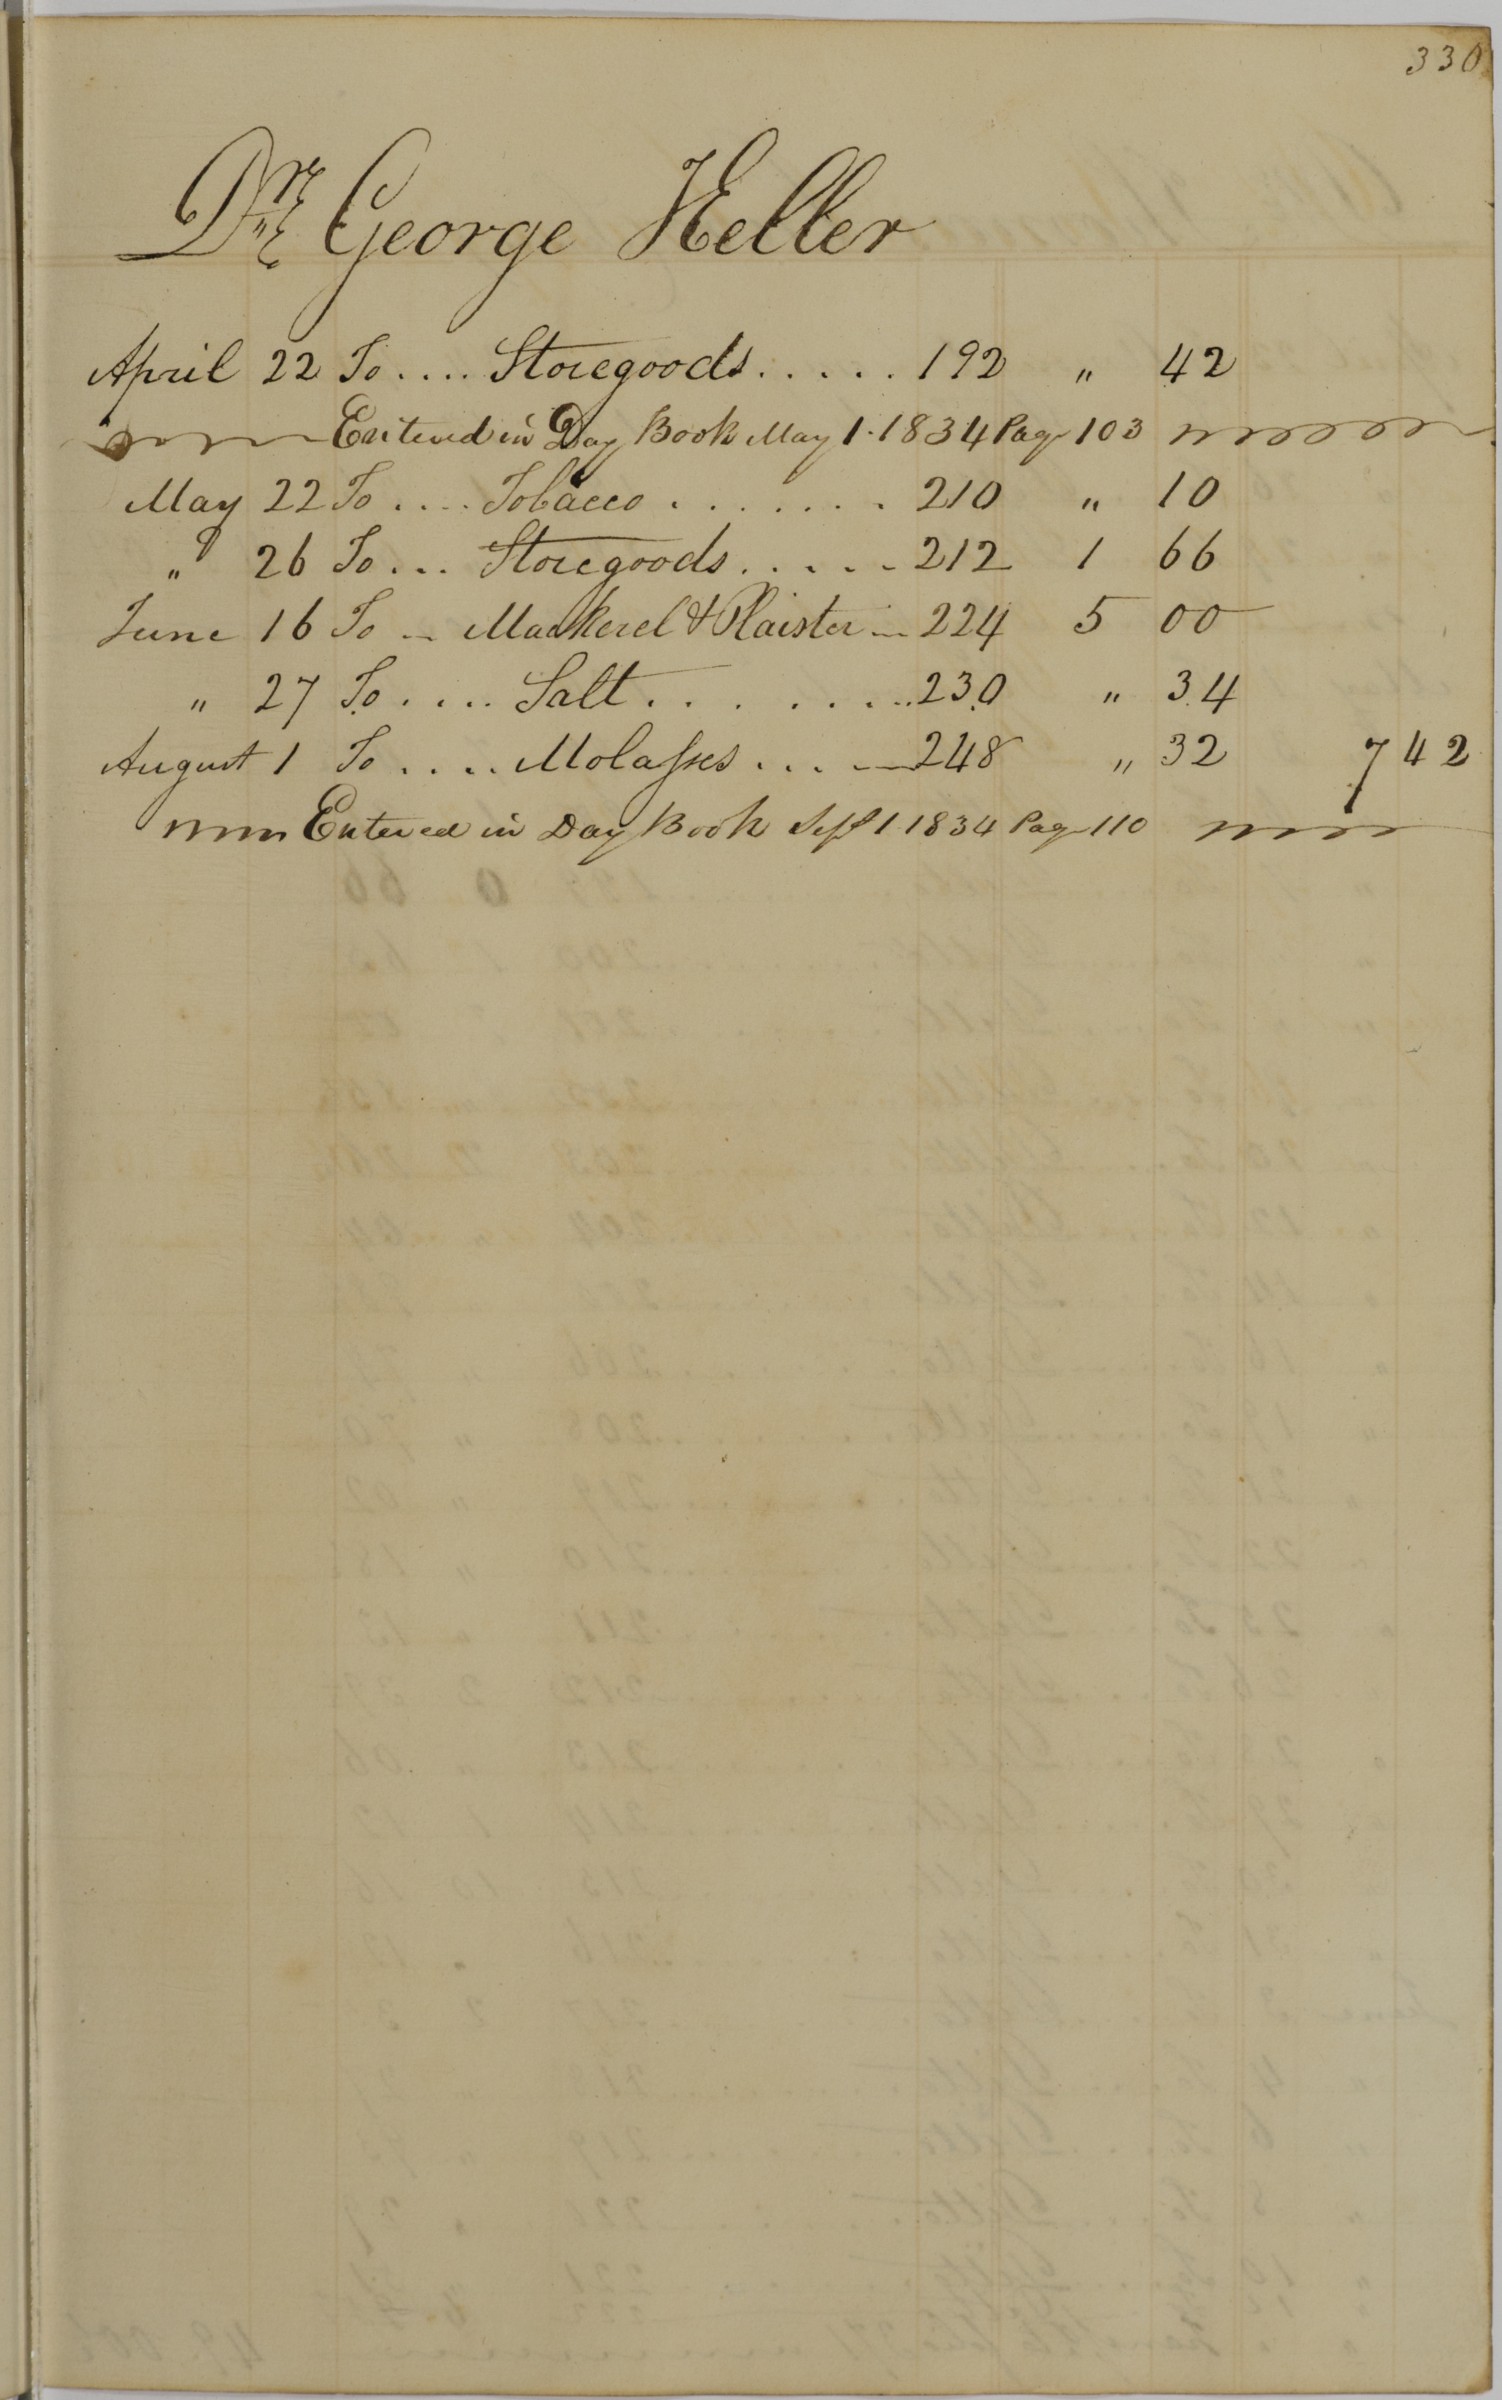 330
Dr. George Heller
April 22 To .... Storegoods ..... 192 " 42
Entered in Day Book May 1. 1834 Page 103
May 22 To .... Tobacco ....... 210 " 10
" 26 To ... Storegoods ..... 212 1 66
June 16 To — Mackerel & Plaister — 224 5 00
" 27 To .... Salt ....... 230 " 34
August 1 To .... Molasses .... 248 " 32 7 42
Entered in Day Book Sept 1. 1834 Page 110